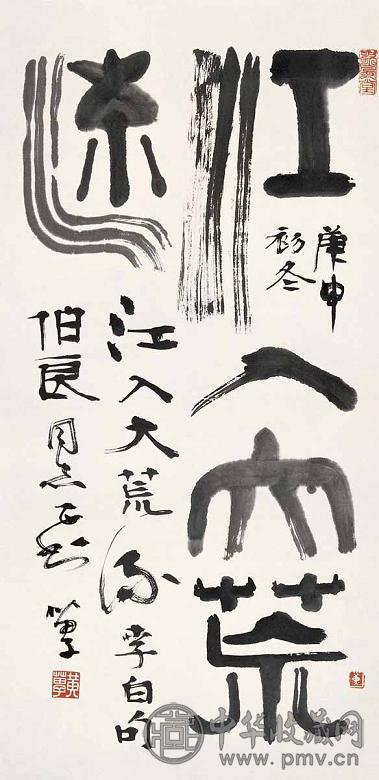 江入大荒
流
庚申
初冬
江入大荒流李白句
伯良同志正
中华收藏网
www.pmv.cn